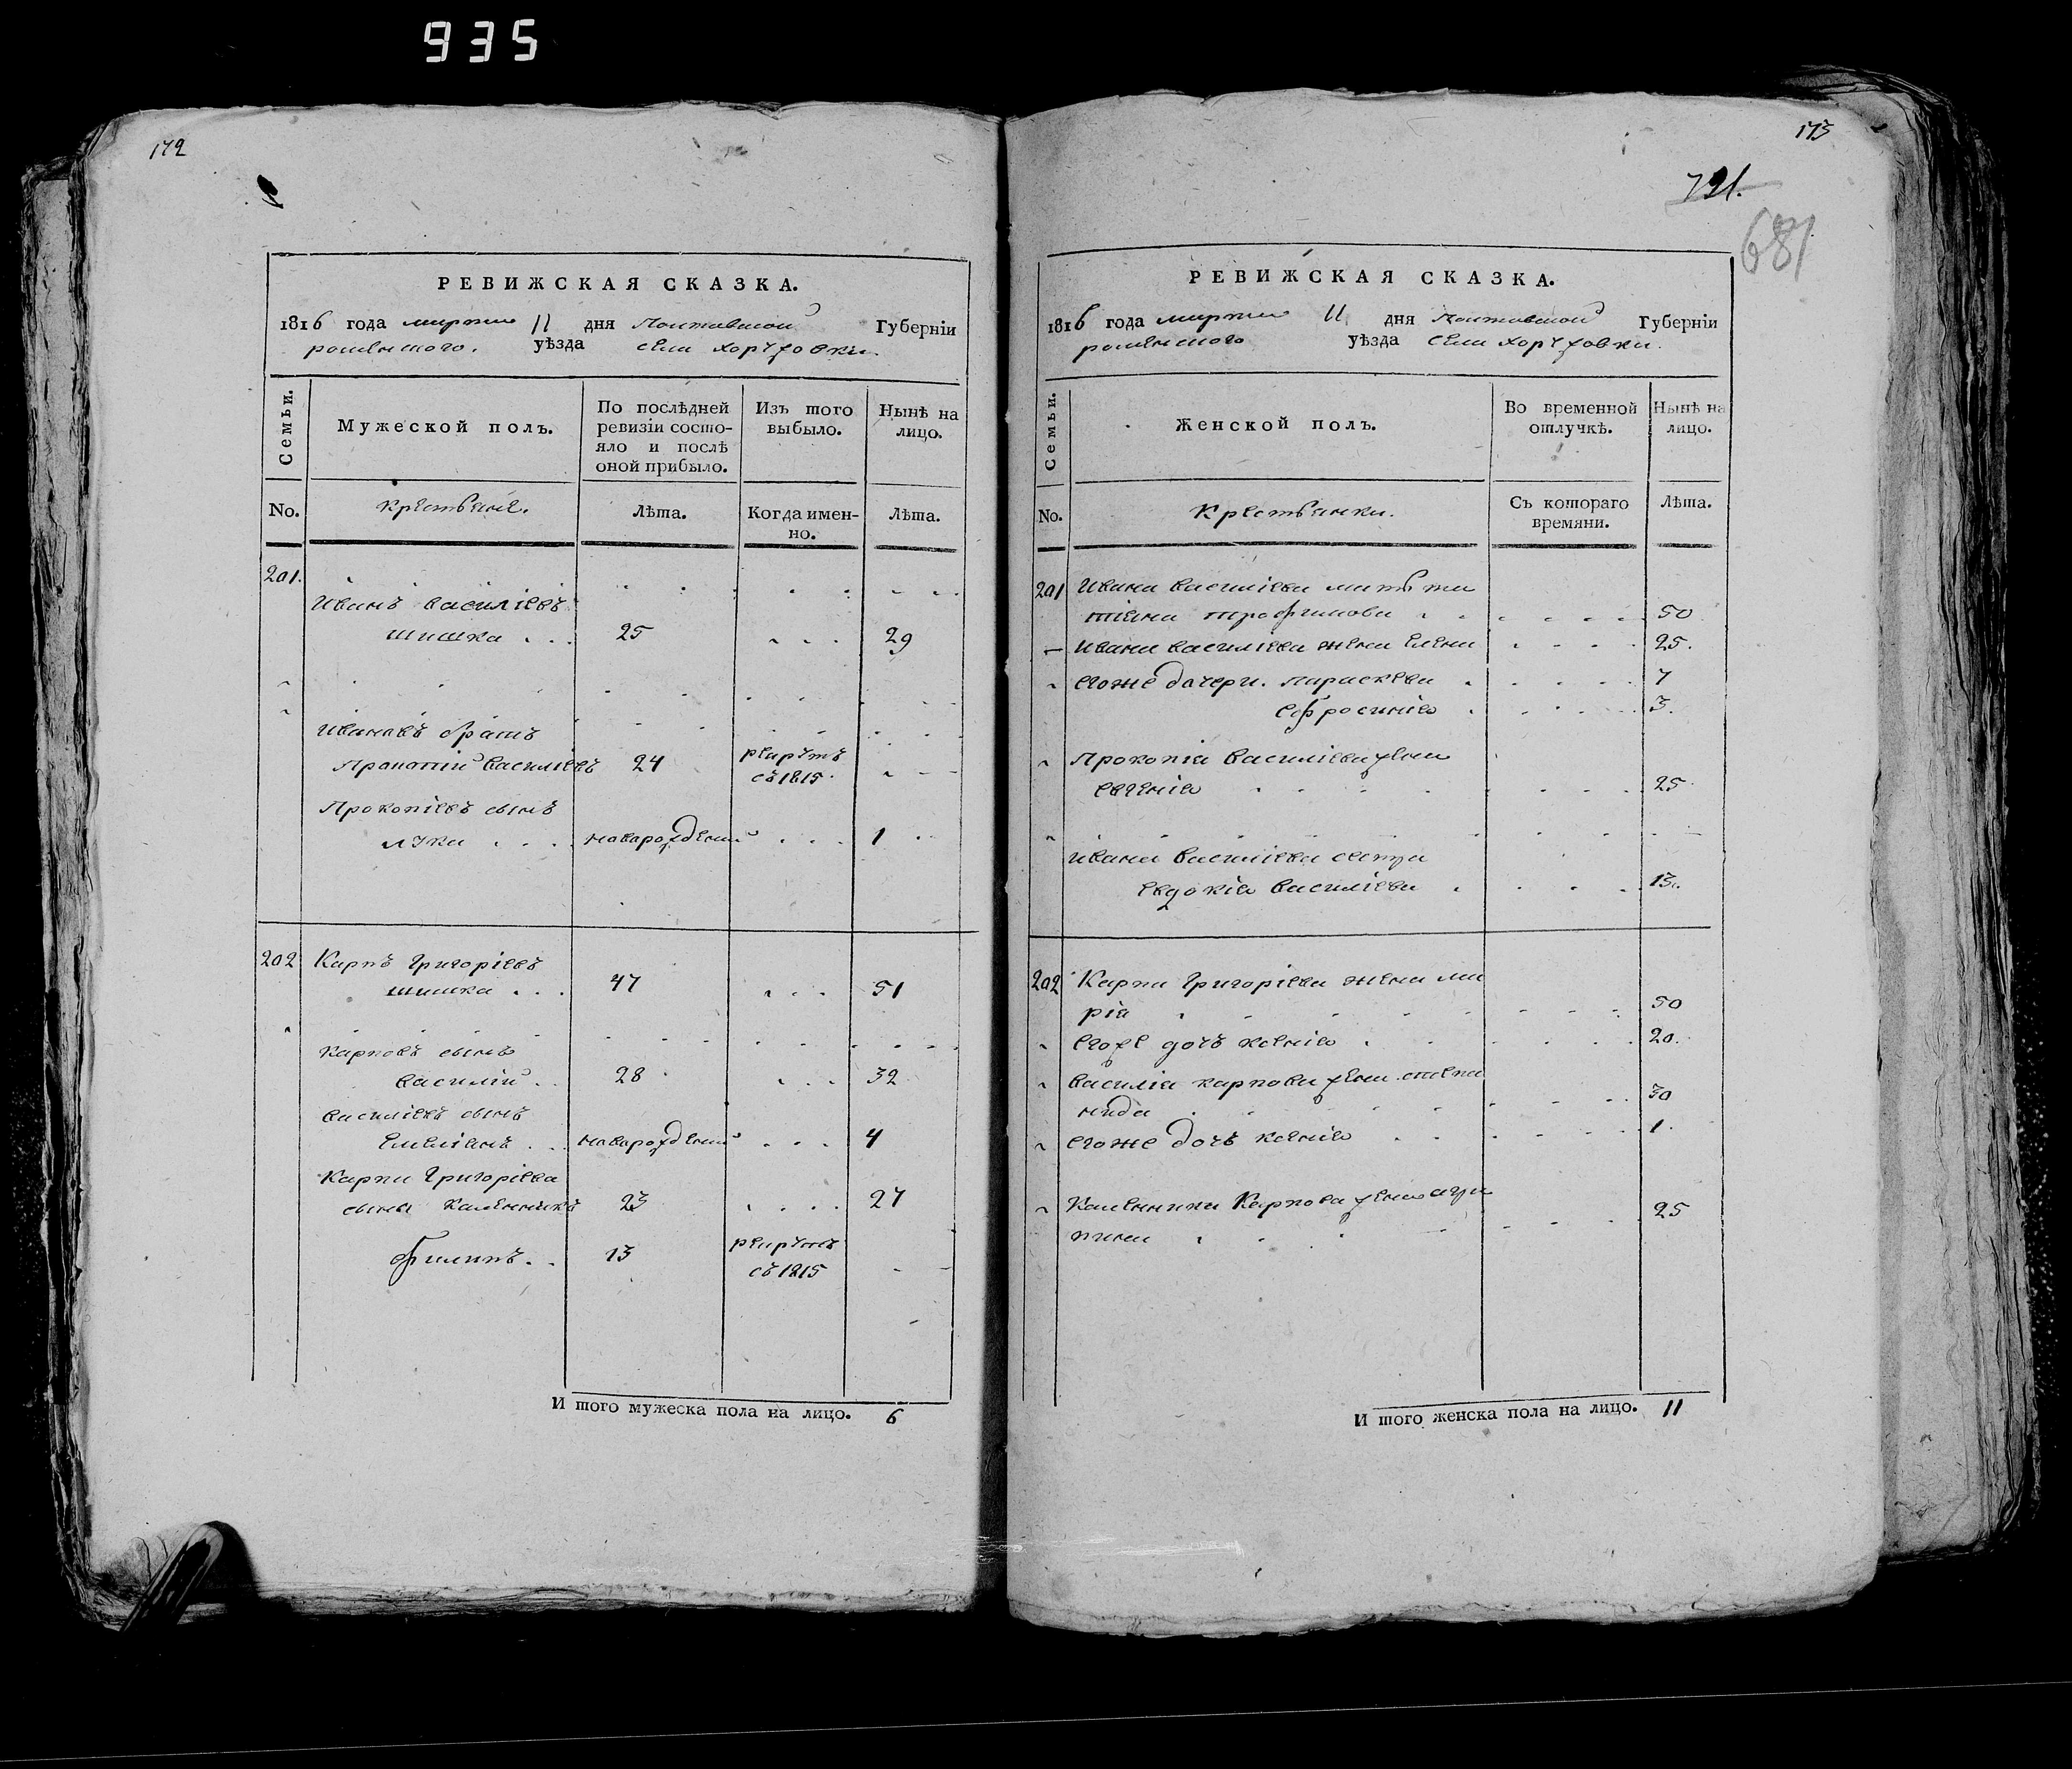 935
172
РЕВИЖСКАЯ СКАЗКА.
1816 года марта 11 дня Полтавской Губернїи
роменского. уѣзда села хоружовки.
Семьи.
Мужеской полъ.
По послѣдней ревизїи состояло и послѣ оной прибыло.
Изъ того выбыло.
Нынѣ на лицо.
No.
крестьяне.
Лѣта.
Когда именно.
Лѣта.
201.
иванъ василіевъ
шишка . . . 25 . . . 29
ивановъ братъ
Прокопій василіевъ 24 рекрутъ съ 1815.
Прокопіевъ сынъ
лука . . . новарождений . . . 1
202 Карпъ Григоріевъ
шишка . . . 47 . . . 51
карповъ сынъ
василій . . 28 . . . 32
василіевъ сынъ
емеліянъ . . . новарождений . . . 4
Карпа Григоріева
сыны каленникъ 23 . . . . 27
филипъ. . 13 рекрутъ съ 1815
И того мужеска пола на лицо. 6
173
721.
681
РЕВИЖСКАЯ СКАЗКА.
1816 года марта 11 дня Полтавской Губернїи
роменского уѣзда села хоружовки.
Семьи.
Женской полъ.
Во временной отлучкѣ.
Нынѣ на лицо.
No.
Крестьянки.
Съ котораго времяни.
Лѣта.
201 ивана василіева мать та
тіяна трофимова 50
ивана василіева жена елена 25.
егоже дочери. параскева 7
ефросинія 3.
Прокопія василіева жена
евгенія 25
ивана василіева сестра
евдокія василіева 13.
202 Карпа Григоріева жена ма
рія 50
егоже дочь ксенія 20.
василія карпова жена степа
нида 30
егоже дочь ксенія 1.
Каленника Карпова жена агри
пина 25
И того женска пола на лицо. 11